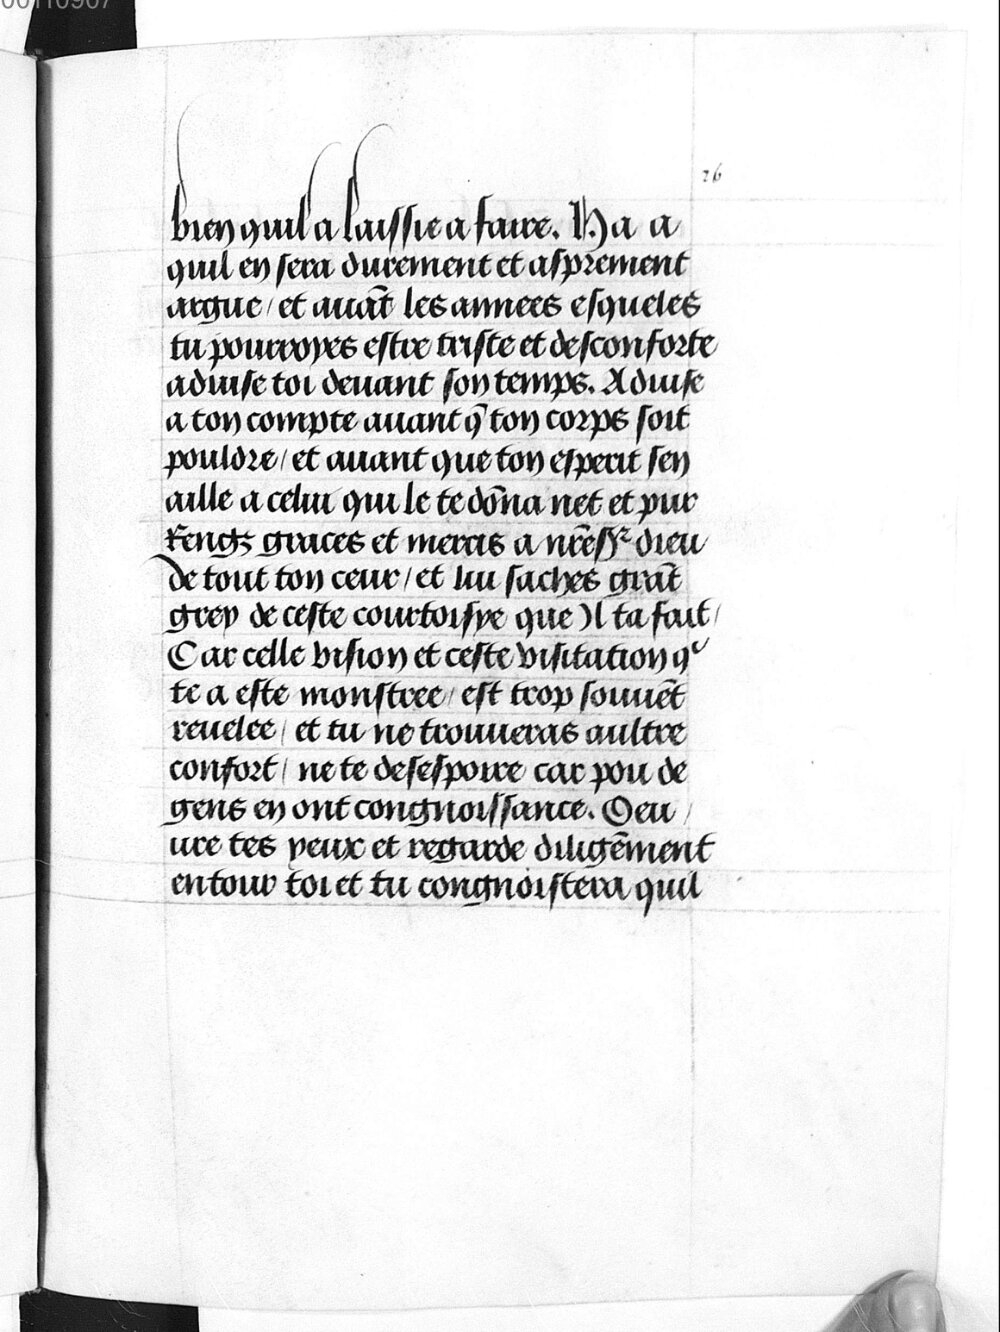 00110907
26
bien quil a laissie a faire. Ha a
quil en sera durement et asprement
argue / et auãt les annees esqueles
tu pourroyes estre triste et desconforte
aduise toi deuant son temps. Aduise
a ton compte auant q̃ ton corps soit
pouldre / et auant que ton esperit sen
aille a celui qui le te dõna net et pur
Rengs graces et mercis a nr̃e sr̃ dieu
de tout ton ceur / et lui saches grãt
grey de ceste courtoisye que Il ta fait /
Car celle vision et ceste visitation q͛
te a este monstree / est trop souuẽt
reuelee / et tu ne trouueras aultre
confort / ne te desespoire car pou de
gens en ont congnoissance. Oeu /
ure tes yeux et regarde diligẽment
entour toi et tu congnoistera quil